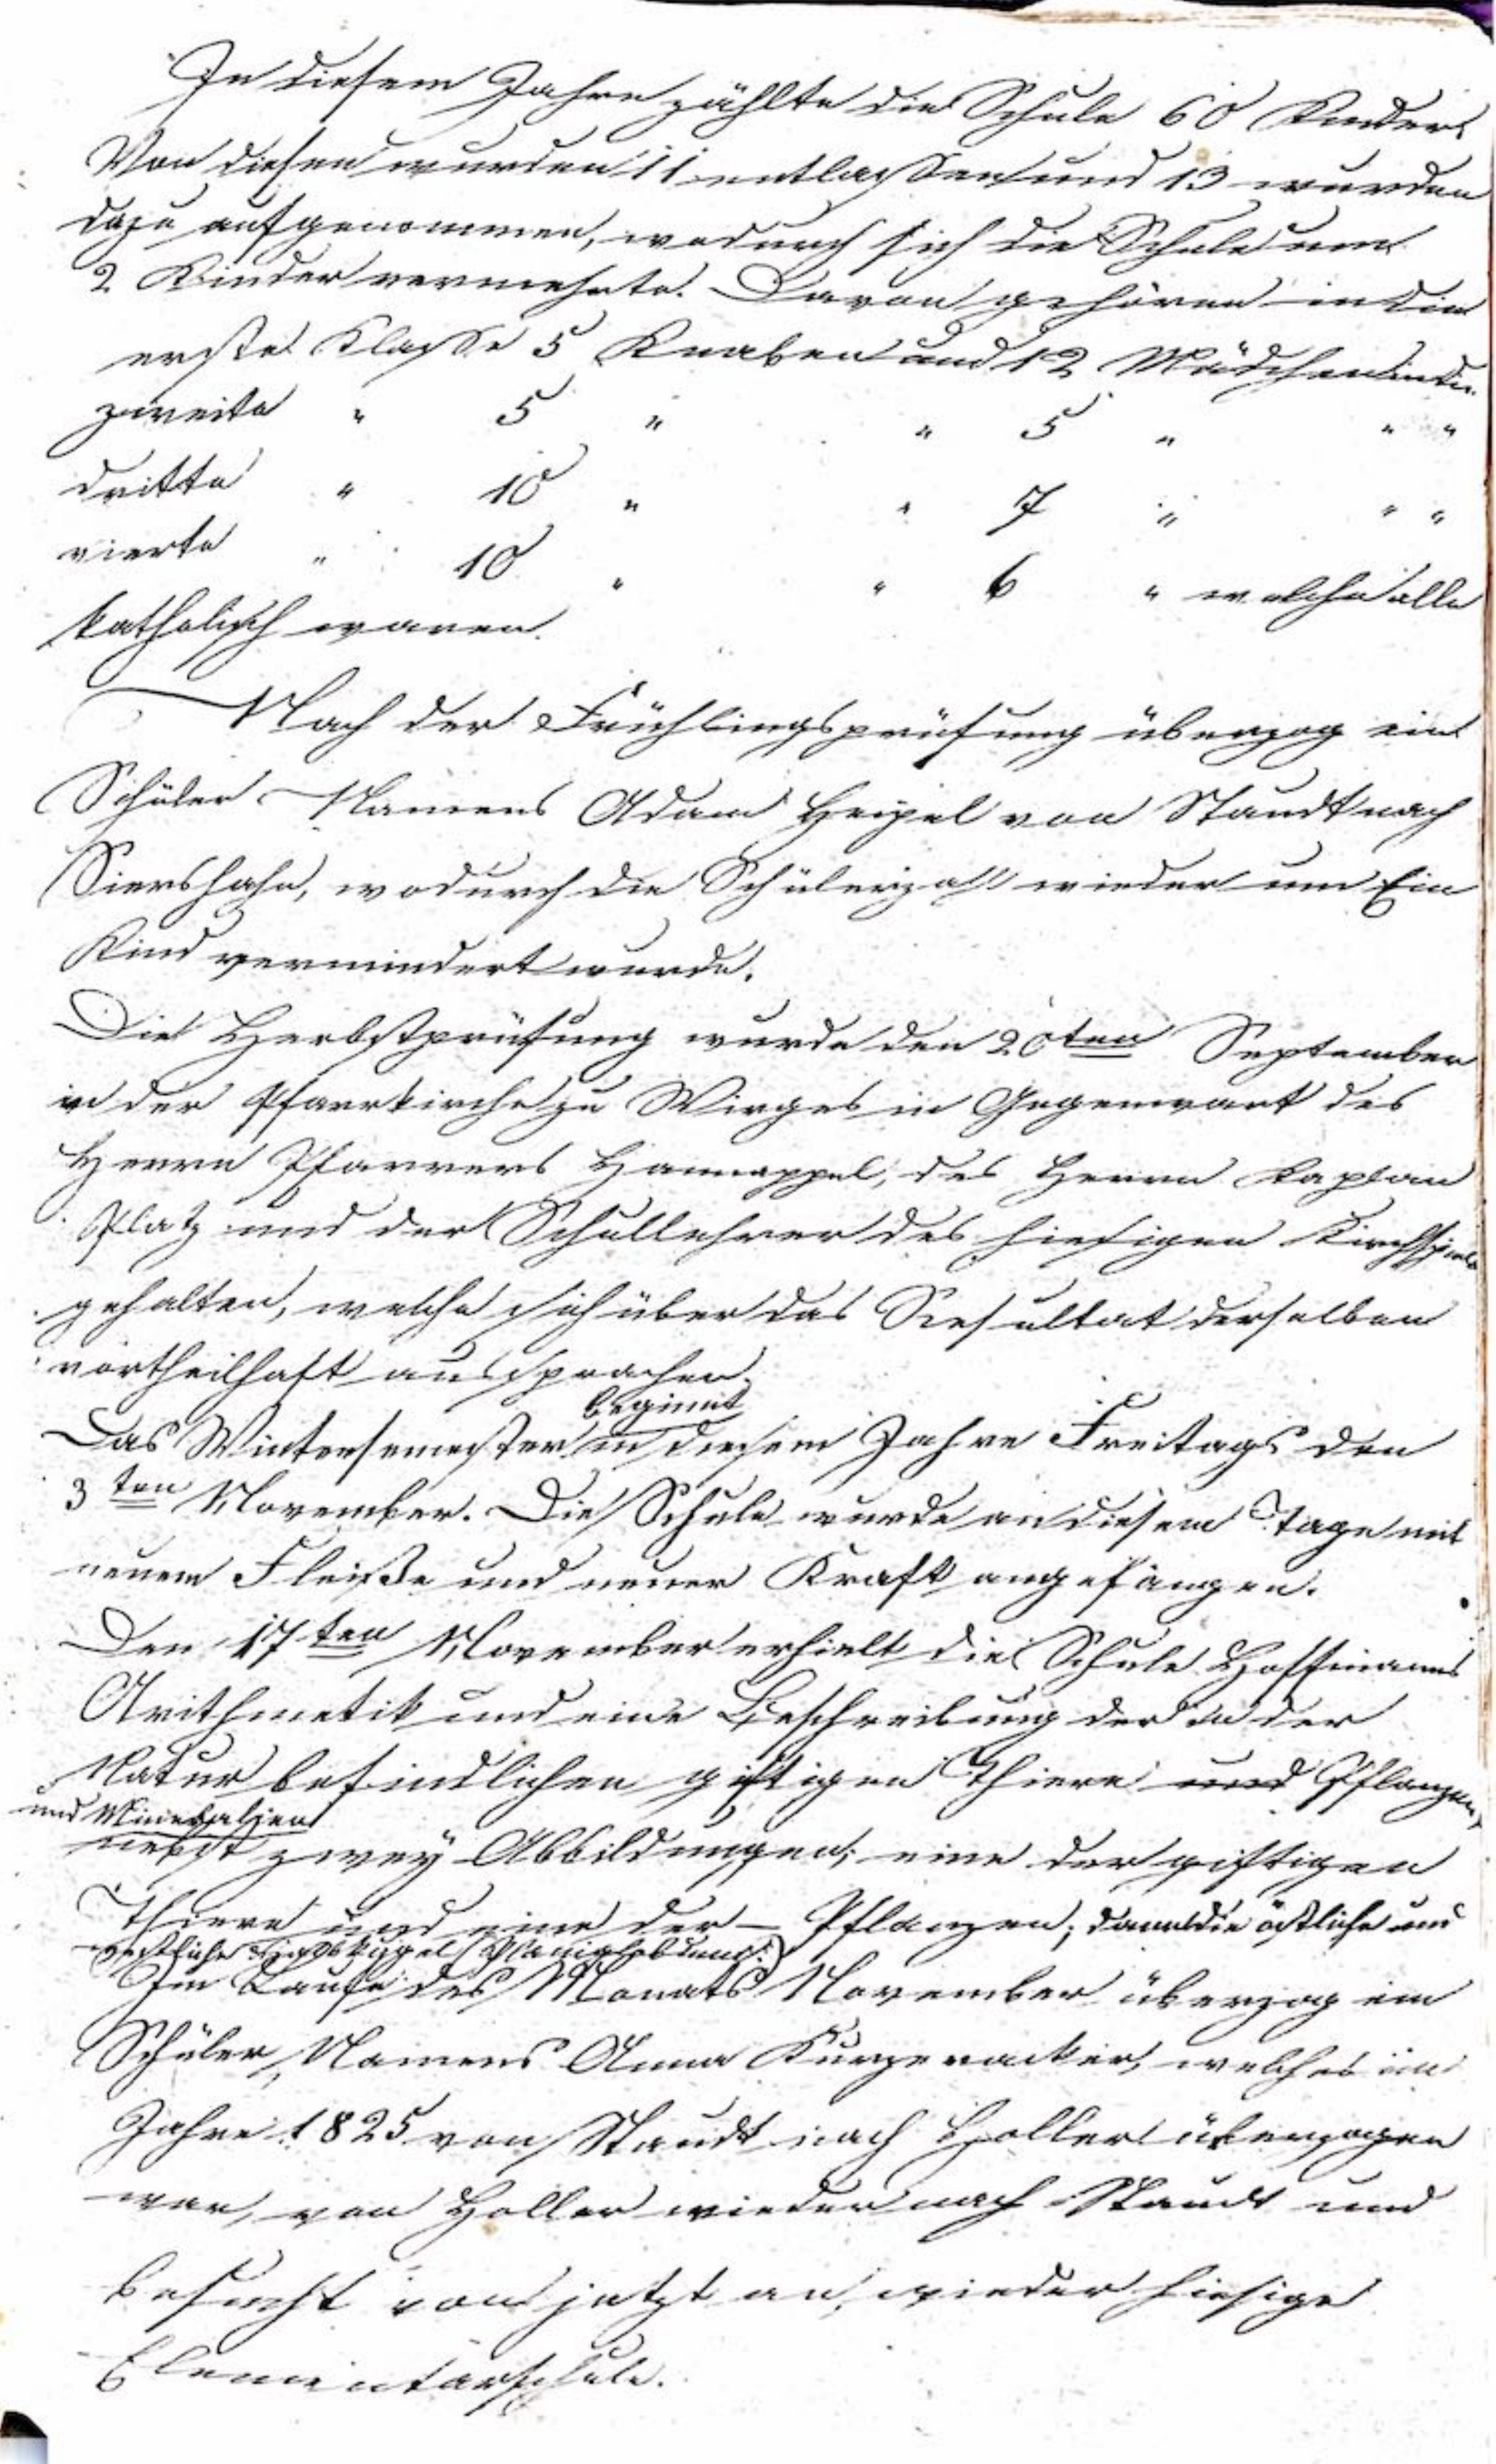 In diesem Jahre zählte die Schule 60 Kinder.
Von diesen wurden 11 entlassen und 13 wurden
dazu aufgenommen, wodurch sich die Schule um
2 Kinder vermehrte. Davon gehören in die
erste Klasse 5 Knaben und 12 Mädchen in die
zweite " 5 " " 5 " " "
dritte " 10 " " 7 " " "
vierte " 10 " " 6 " welche alle
katholisch waren.
Nach der Frühlingsprüfung überzog ein
Schüler Namens Adam von Staudt nach
Siershahn, wodurch die Schülerzahl wieder um Ein
Kind vermindert wurde.
Die Herbstprüfung wurde den 20ten September
in der Pfarrkirche zu Wirges in Gegenwart des
Herrn Pfarrers Hannappel, des Herrn Kaplan
Platz und der Schullehrer des hiesigen Kirchspiels
gehalten, welche sich über das Resultat derselben
vortheilhaft aussprachen.
beginnt
Das Wintersemester in diesem Jahre Freitags den
3ten November. Die Schule wurde an diesem Tage mit
neuem Fleiße und neuer Kraft angefangen.
Den 17ten November erhielt die Schule Hoffmanns
Arithmetik und eine Beschreibung der in der
Natur befindlichen giftigen Thiere und Pflanzen,
und Mineralien
nebst zwey Abbildungen; eine der giftigen
Thiere und eine der – Pflanzen; dann die östliche und
westliche
Im Laufe des Monats November überzog ein
Schüler, Namens Anna welches im
Jahre 1825 von Staudt nach Holler überzogen
war, von Holler wieder nach Staudt und
besucht von jetzt an wieder hiesige
Elementarschule.